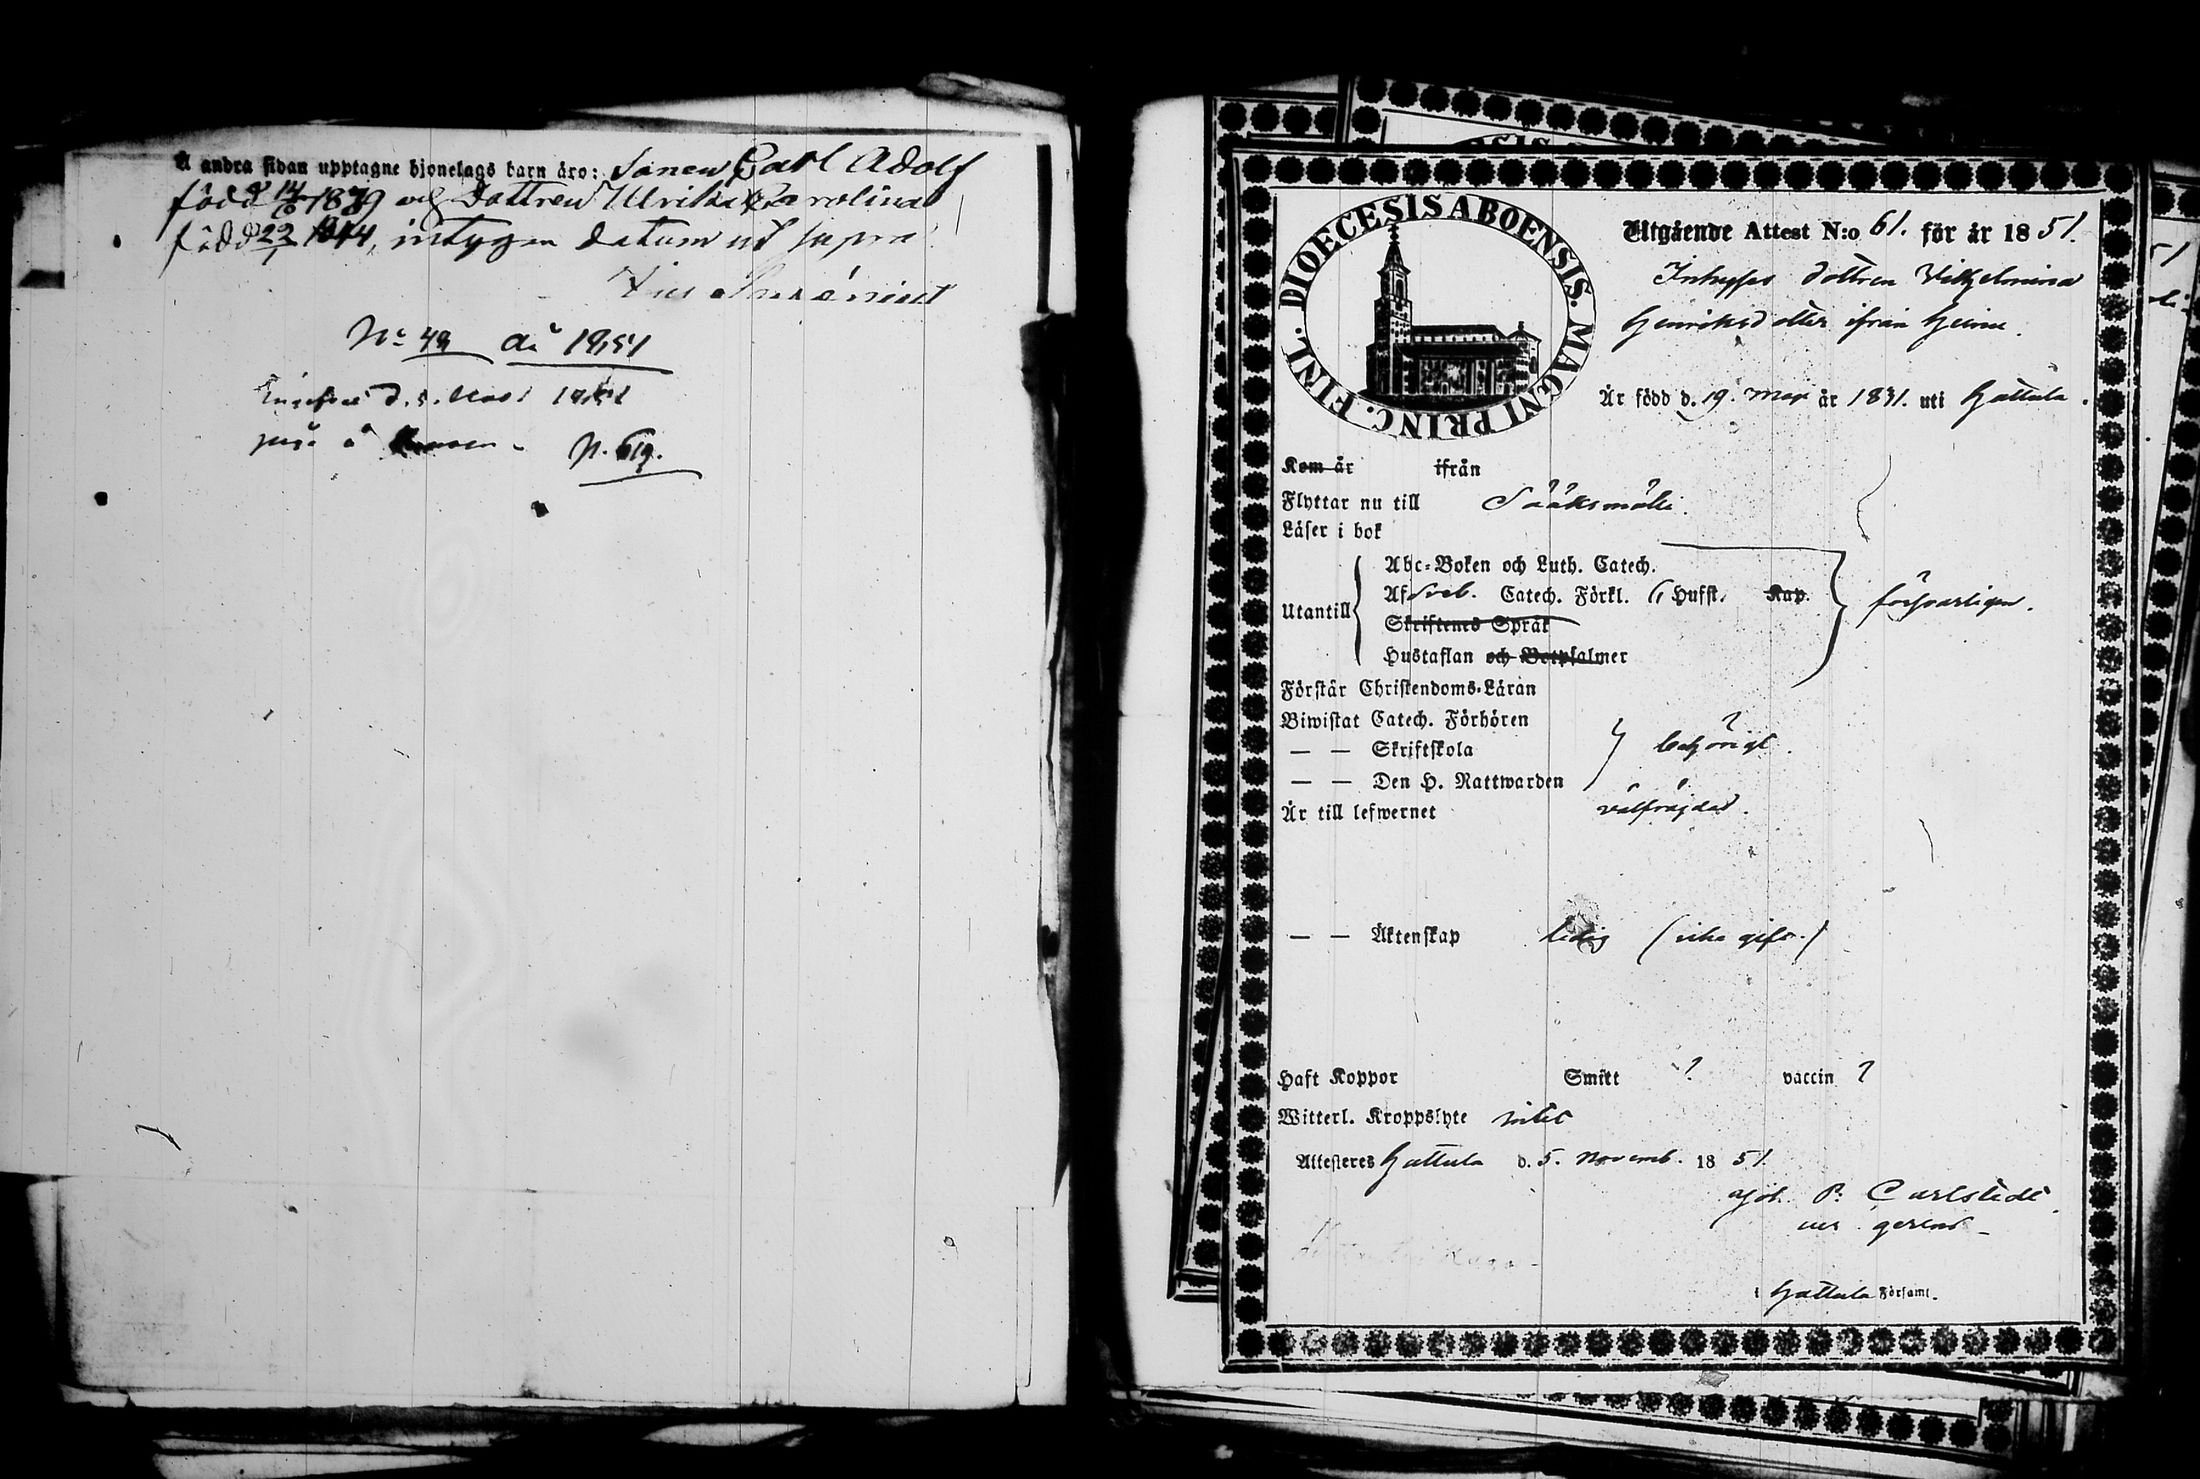 Å andra sidan upptagne hjonelags barn äro: Sonen Carl Adolf
född 14/6 1839 och Dottren Ulrika Carolina
född 22/1 1844, intygar datum ut supra
N:o 49 år 1851
d. 5. Nov. 1851
N. 619.
DIOECESIS ABOENSIS. MAGNI PRINC. FINL.
Utgående Attest N:o 61. för år 1851.
Inhyses dottren Vilhelmina
Henriksdotter ifrån
Är född d. 19. Maji år 1831. uti Hattula.
Kom år ifrån
Flyttar nu till Sääksmäki.
Läser i bok
Utantill
Abc-Boken och Luth. Catech.
Af Sveb. Catech. Förkl. 6 Hufst. Kap.
Skriftenes Språk
Hustaflan och Botpsalmer
försvarligen.
Förstår Christendoms-Läran
Biwistat Catech. Förhören
— — Skriftskola behörigt.
— — Den H. Nattwarden
Är till lefwernet välfrejdad.
— — Äktenskap ledig (icke gift.)
Haft Koppor Smitt ? vaccin ?
Witterl. Kroppslyte intet
Attesteres Hattula d. 5. Novemb. 1851
Joh. P. Carlstedt
vices gerens
i Hattula Församl.